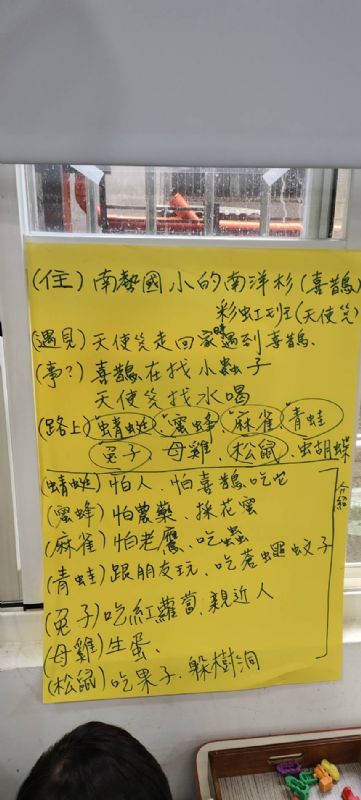 (住) 南勢國小的南洋杉 (喜鵲)
彩虹班 (天使笑)
(遇見) 天使笑走回家時遇到喜鵲、
(事?) 喜鵲在找小蟲子
天使笑找水喝
(路上) 蜻蜓 蜜蜂 麻雀 青蛙
兔子 母雞、松鼠、蝴蝶
(蜻蜓) 怕人、怕喜鵲吃它
(蜜蜂) 怕農藥、採花蜜
(麻雀) 怕老鷹、吃蟲
(青蛙) 跟朋友玩、吃蒼蠅蚊子
(兔子) 吃紅蘿蔔、親近人
(母雞) 生蛋、
(松鼠) 吃果子、躲樹洞
介紹